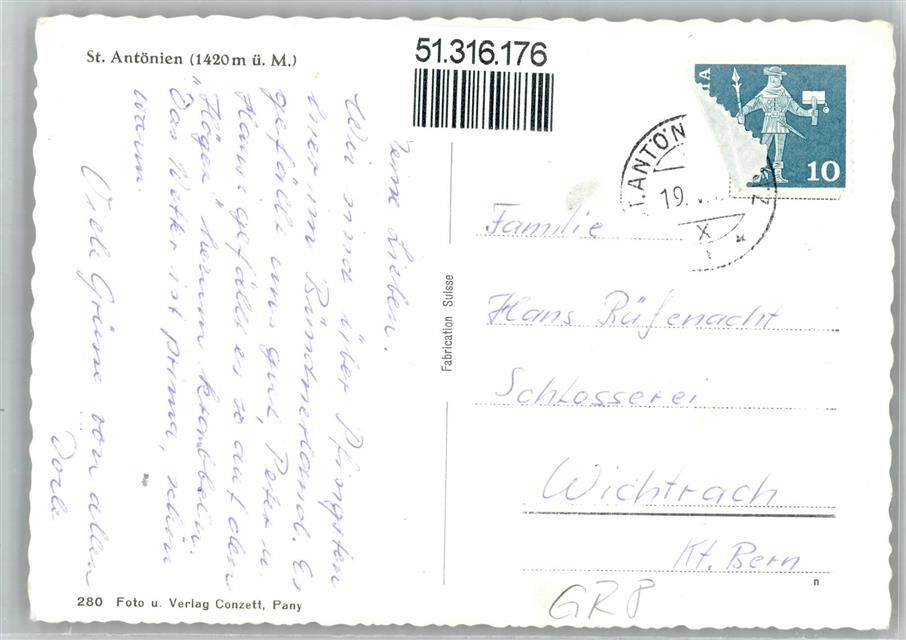 St. Antönien (1420 m ü. M.)
51.316.176
Meine Lieben.
Wir sind über Pfingsten
hier im Bündnerland. Es
gefällt uns gut, Peter u.
Hansi gefällt es so auf den
"Höger" herum krambbeln.
Das Wetter ist prima, schön
warm.
Viele Grüsse von allen
Dorli
280 Foto u. Verlag Conzett, Pany
Fabrication Suisse
10
ANTÖN
19.
X
Familie
Hans Rüfenacht
Schlosserei
Wichtrach
Kt. Bern
n
GR 8